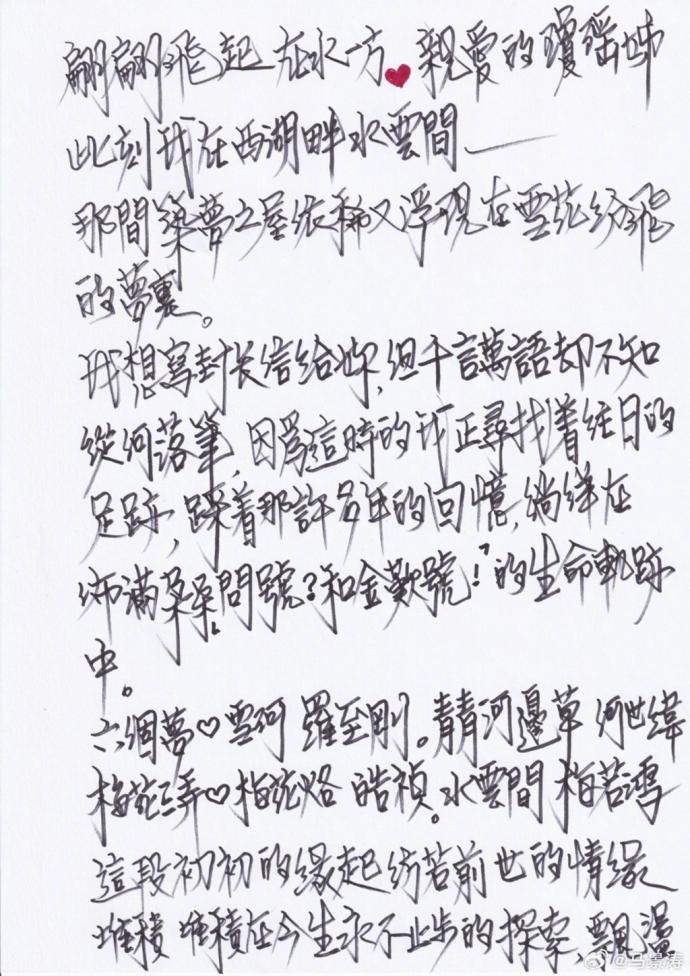 翩翩飛起 在水一方❤親愛的瓊瑤姊
此刻我在西湖畔水雲間——
那間築夢之屋依稀又浮現在雪花紛飛
的夢裏。
我想寫封长信給妳,但千言萬語却不知
從何落筆,因爲這時的我正尋找着往日的
足跡,踩着那許多年的回憶,徜徉在
佈滿朵朵問號?和金歎號!的生命軌跡
中。
六個夢♡雪河 羅至剛。青青河邊草 何世緯
梅花三弄♡梅花烙 皓禎。水雲間 梅若鴻
這段初初的緣起彷若前世的情緣
堆積 堆積在今生永不止步的探索,飄
@马景涛